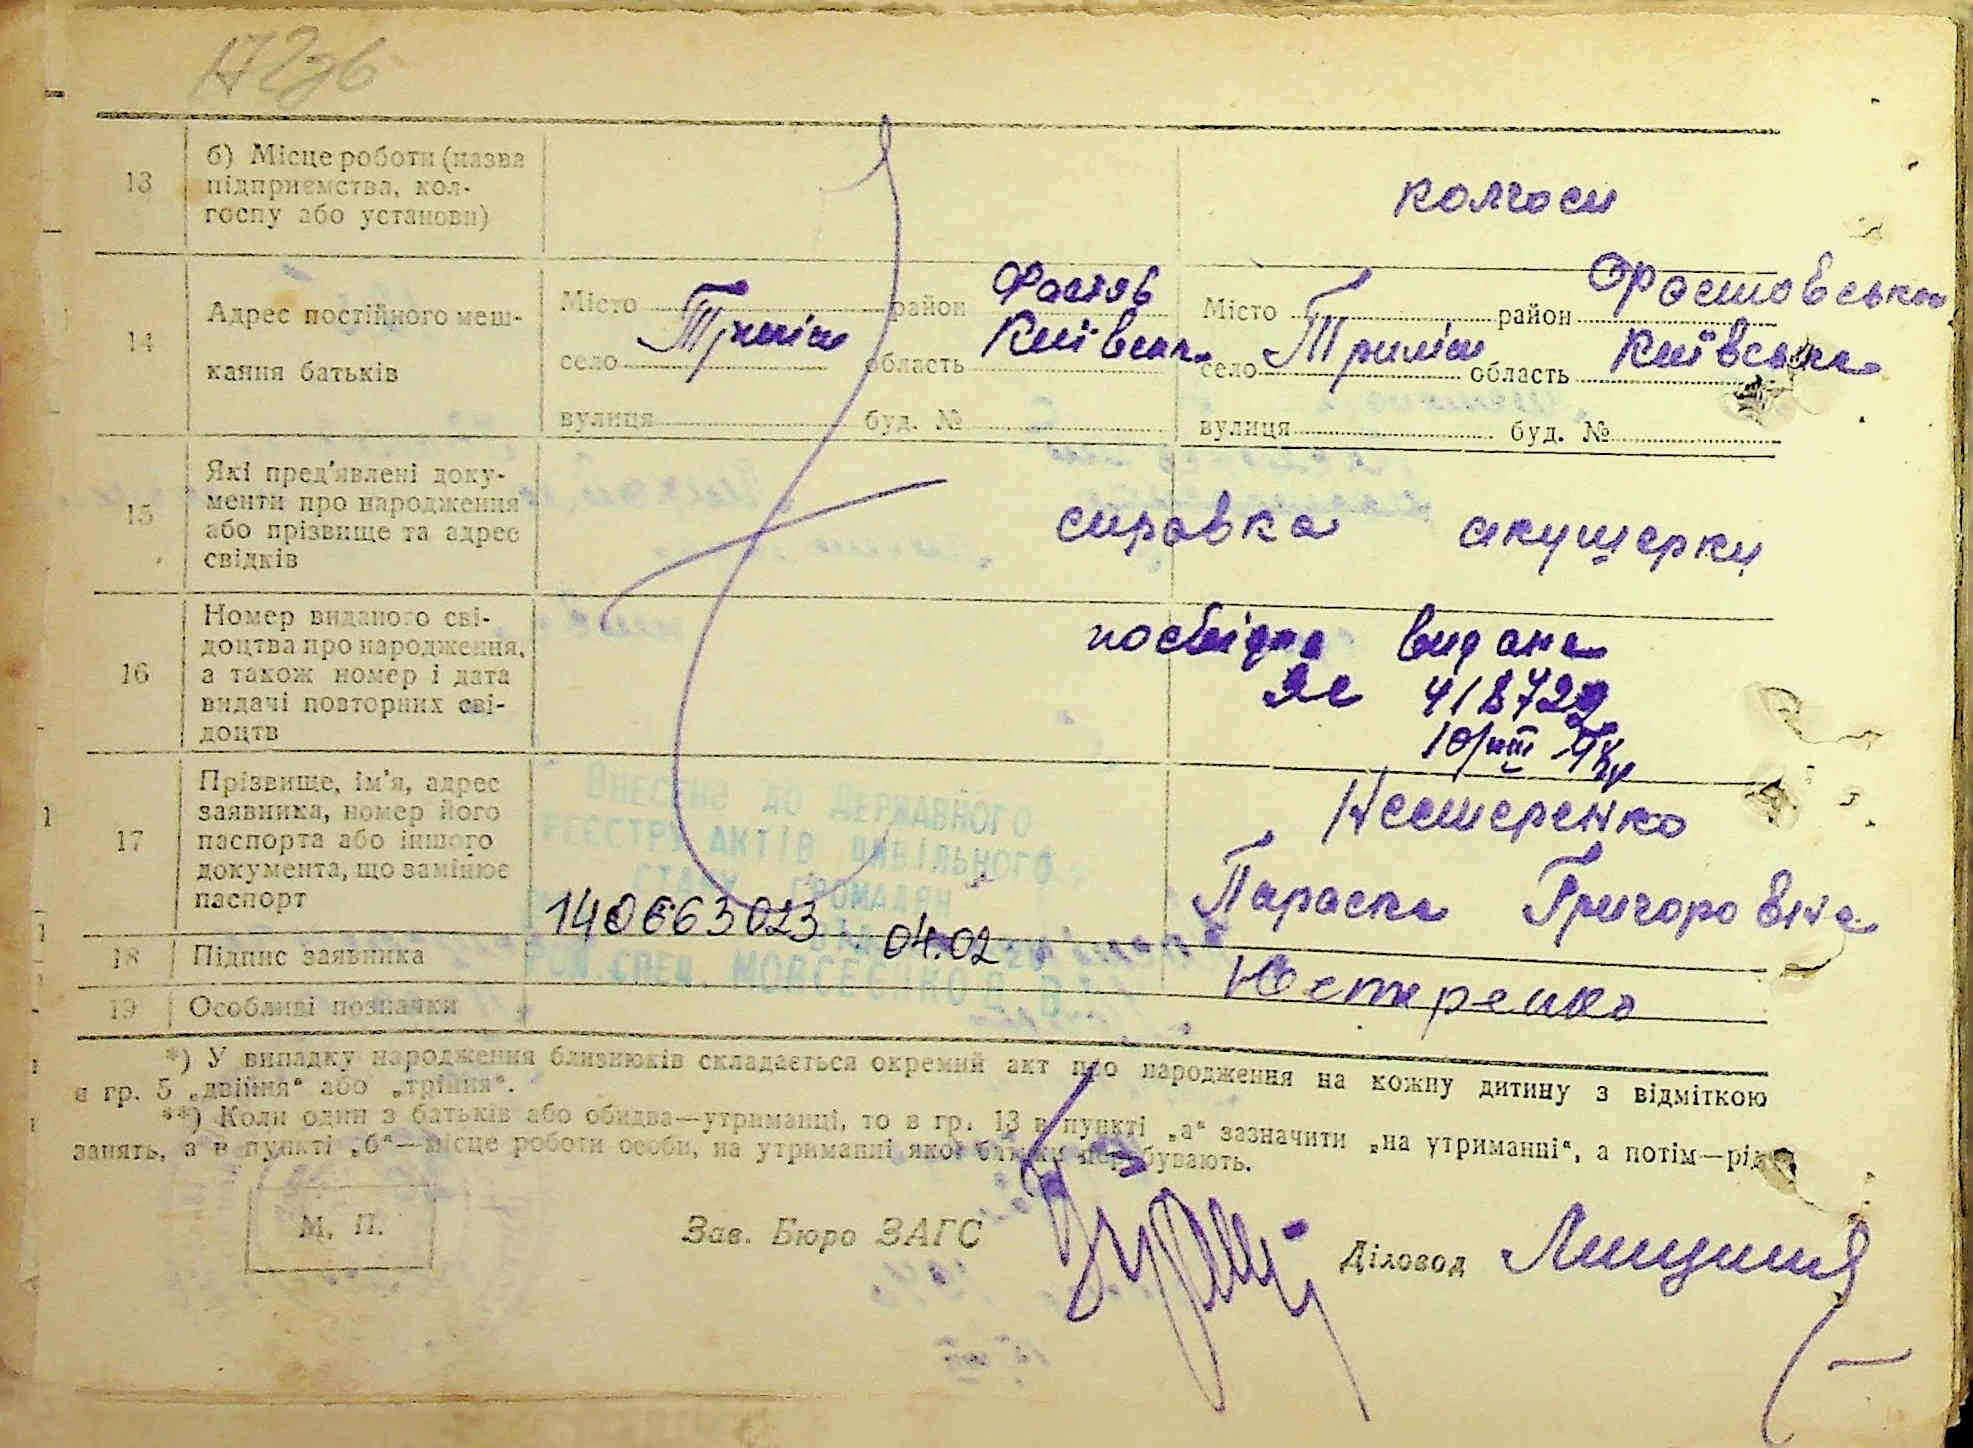 172зв
13 б) Місце роботи (назва
підприємства, кол-
госпу або установи)
колгосп
14 Адрес постійного меш-
кання батьків
Місто район Фастів
село Триліси область Київськ.
вулиця буд. №
Місто район Фастовський
село Триліси область Київська
вулиця буд. №
15 Які пред'явлені доку-
менти про народження
або прізвище та адрес
свідків
справка акушерки
16 Номер виданого сві-
доцтва про народження,
а також номер і дата
видачі повторних сві-
доцтв
видана
418722
17 Прізвище, ім'я, адрес
заявника, номер його
паспорта або іншого
документа, що замінює
паспорт
Нестеренко
Параска Григоровна
ВНЕСЕНО ДО ДЕРЖАВНОГО
РЕЄСТРУ АКТІВ ЦИВІЛЬНОГО
СТАНУ ГРОМАДЯН
140663023 04.02
18 Підпис заявника
Нестеренко
19 Особливі позначки
*) У випадку народження близнюків складається окремий акт про народження на кожну дитину з відміткою
в гр. 5 „двійня“ або „трійня“.
**) Коли один з батьків або обидва—утриманці, то в гр. 13 в пункті „а“ зазначити „на утриманні“, а потім—рід
занять, а в пункті „б“—місце роботи особи, на утриманні якої батьки перебувають.
М. П.
Зав. Бюро ЗАГС
Діловод